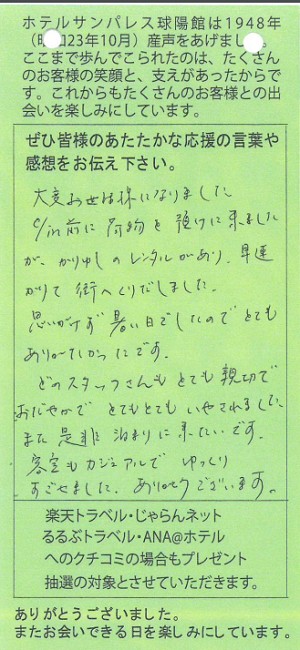 ホテルサンパレス球陽館は1948年
（昭和23年10月）産声をあげました。
ここまで歩んでこられたのは、たくさん
のお客様の笑顔と、支えがあったからで
す。これからもたくさんのお客様との出
会いを楽しみにしています。
ぜひ皆様のあたたかな応援の言葉や
感想をお伝え下さい。
大変お世話様になりました
c/in前に荷物を預けに来ました
が、かりゆしのレンタルがあり、早速
かりて街へくりだしました。
思いがけず暑い日でしたのでとても
ありがたかったです。
どのスタッフさんもとても親切で
おだやかでとてもとてもいやされました
また是非泊まりに来たいです。
客室もカジュアルでゆっくり
すごせました。ありがとうございます。
楽天トラベル・じゃらんネット
るるぶトラベル・ANA@ホテル
へのクチコミの場合もプレゼント
抽選の対象とさせていただきます。
ありがとうございました。
またお会いできる日を楽しみにしています。